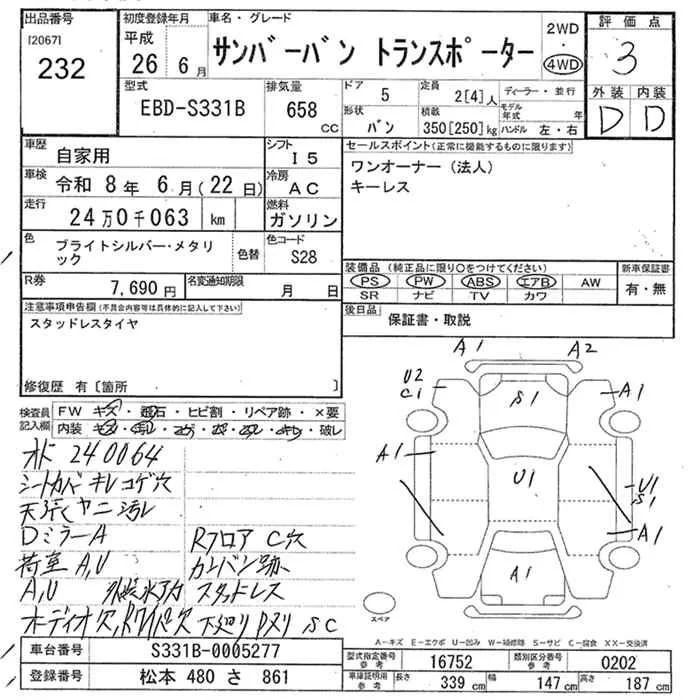 出品番号
[2067]
232
初度登録年月
平成
26年 6月
車名・グレード
サンバーバン トランスポーター
2WD
・
4WD
評価点
3
外装 内装
D D
型式
EBD-S331B
排気量
658 CC
ドア 5
形状 バン
定員 2[4]人
積載 350[250]kg
ディーラー・並行
モデル年式 年
ハンドル 左・右
車歴 自家用
シフト I5
車検 令和 8年 6月(22日)
冷房 AC
走行 24万0千063 km
燃料 ガソリン
色 ブライトシルバー・メタリック
色替
色コード S28
R券 7,690円
名変通知期限 月 日
セールスポイント(正常に機能するものに限ります)
ワンオーナー(法人)
キーレス
装備品 (純正品に限り○をつけてください)
PS PW ABS エアB AW
SR ナビ TV カワ
新車保証書
有・無
後日品 保証書・取説
注意事項申告欄(不具合内容等は具体的に記入して下さい)
スタッドレスタイヤ
修復歴 有〔箇所 〕
検査員記入欄
FW キズ・飛石・ヒビ割・リペア跡・×要
内装
破レ
オド 240064
シートカバー キレ コゲ穴
天張 ヤニ 汚レ
Dミラー A
Rフロア C 穴
荷室 A,U
カーバン跡
A,U
スタッドレス
オーディオ欠
下廻り Pヌリ SC
A1 A2
U2
C1
S1
A1
A1
U1
U1
S1
A1
A1
スペア
A-キズ E-エクボ U-凹み W-補修跡 S-サビ C-腐食 XX-交換済
車台番号 S331B-0005277
登録番号 松本 480 さ 861
型式指定番号 参考 16752
類別区分番号 参考 0202
車庫証明用 参考 長さ 339 cm 幅 147 cm 高さ 187 cm